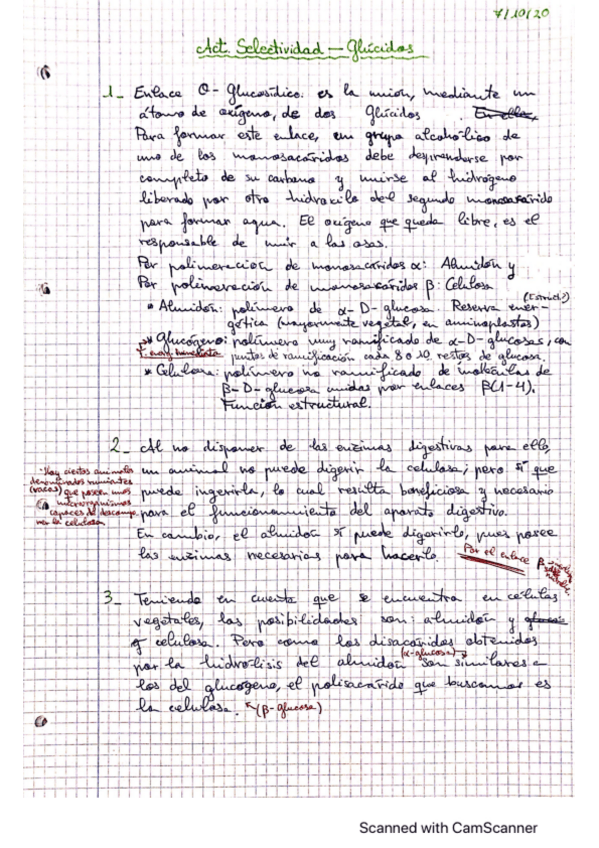 7/10/20
Act. Selectividad — Glúcidos
1_ Enlace O-Glucosídico. es la unión, mediante un
átomo de oxígeno, de dos Glúcidos. En ellos,
Para formar este enlace, un grupo alcohólico de
uno de los monosacáridos debe desprenderse por
completo de su carbono y unirse al hidrógeno
liberado por otro hidroxilo del segundo monosacárido
para formar agua. El oxígeno que queda libre, es el
responsable de unir a las osas.
Por polimereción de monosacáridos α: Almidón y
Por polimereción de monosacáridos β: Celulosa
(Estruct?)
* Almidón: polímero de α-D-glucosa. Reserva ener-
gética (mayormente vegetal, en aminoplastos)
* Glucógeno: polímero muy ramificado de α-D-glucosas, con
puntos de ramificación cada 8 o 10 restos de glucosa.
* Celulosa: polímero no ramificado de moléculas de
β-D-glucosa unidas por enlaces β(1-4).
Función estructural.
2_ Al no disponer de las enzimas digestivas para ello,
un animal no puede digerir la celulosa; pero sí que
puede ingerirla, lo cual resulta beneficioso y necesario
para el funcionamiento del aparato digestivo.
En cambio, el almidón sí puede digerirlo, pues posee
las enzimas necesarias para hacerlo. Por el enlace β
*Hay ciertos animales
denominados rumiantes
(vacas) que poseen unos
microorganismos
capaces de descompo-
ner la celulosa
3_ Teniendo en cuenta que se encuentra en células
vegetales, las posibilidades son: almidón y
y celulosa. Pero como los disacáridos obtenidos
por la hidrólisis del almidón (α-glucosa) son similares a
los del glucógeno, el polisacárido que buscamos es
la celulosa. (β-glucosa)
Scanned with CamScanner